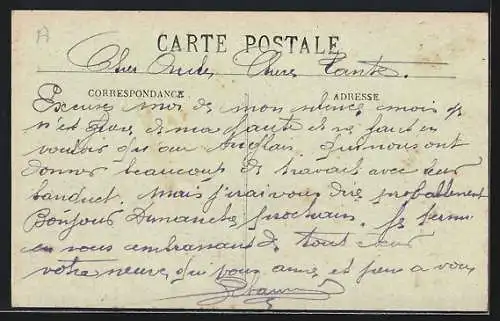 A
CARTE POSTALE
Cher Oncle, Chère Tante.
CORRESPONDANCE ADRESSE
Excusé moi de mon silence mois se
n'est pas de ma faute il ne faut en
vouloir qu'aux Anglais. qui nous ont
donner beaucoup de travail avec leur
banquet. Mais j'irai vous dire probablement
Bonjour Dimanche prochain. Je termine
en vous embrassant de tout cœur
votre neveu qui vous aime et pense a vous